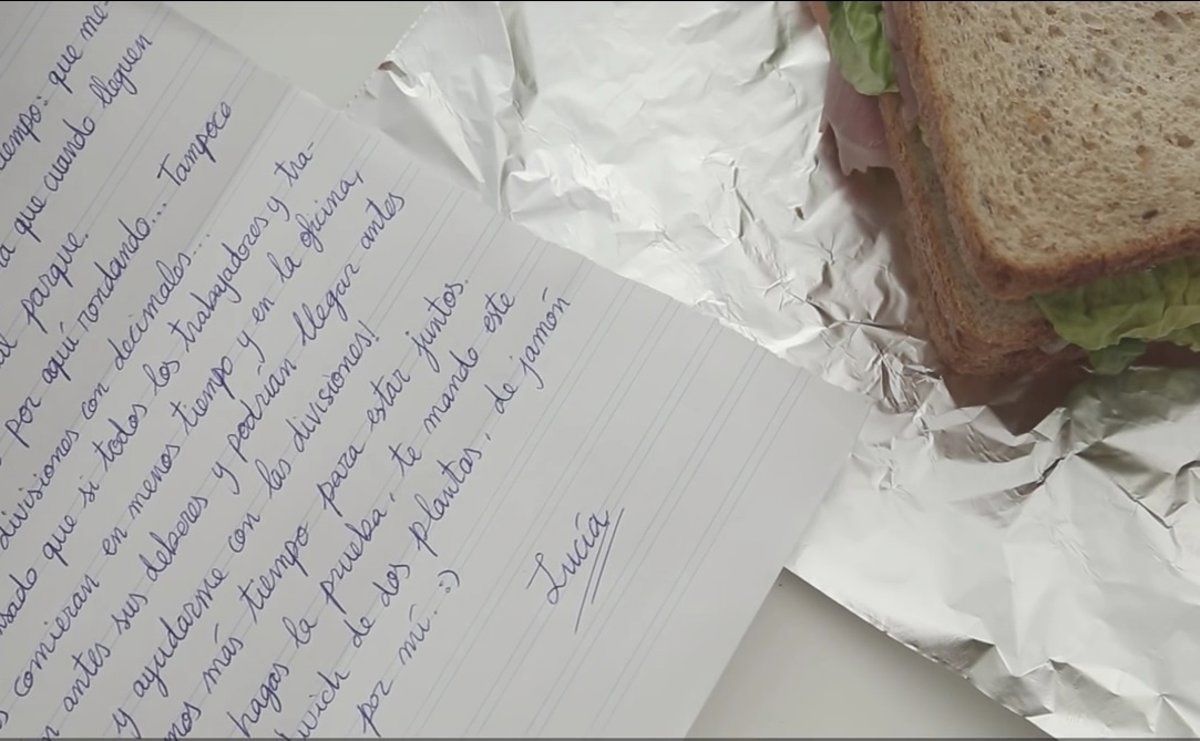 tiempo: que me-
que cuando lleguen
al parque.
por aquí rondando... Tampoco
divisiones con decimales...
que si todos los trabajadores y tra-
comieran en menos tiempo y en la oficina,
antes sus deberes y podrían llegar antes
y ayudarme con las divisiones!
más tiempo para estar juntos.
hagas la prueba, te mando este
de dos plantas, de jamón
por mí. :)
Lucía